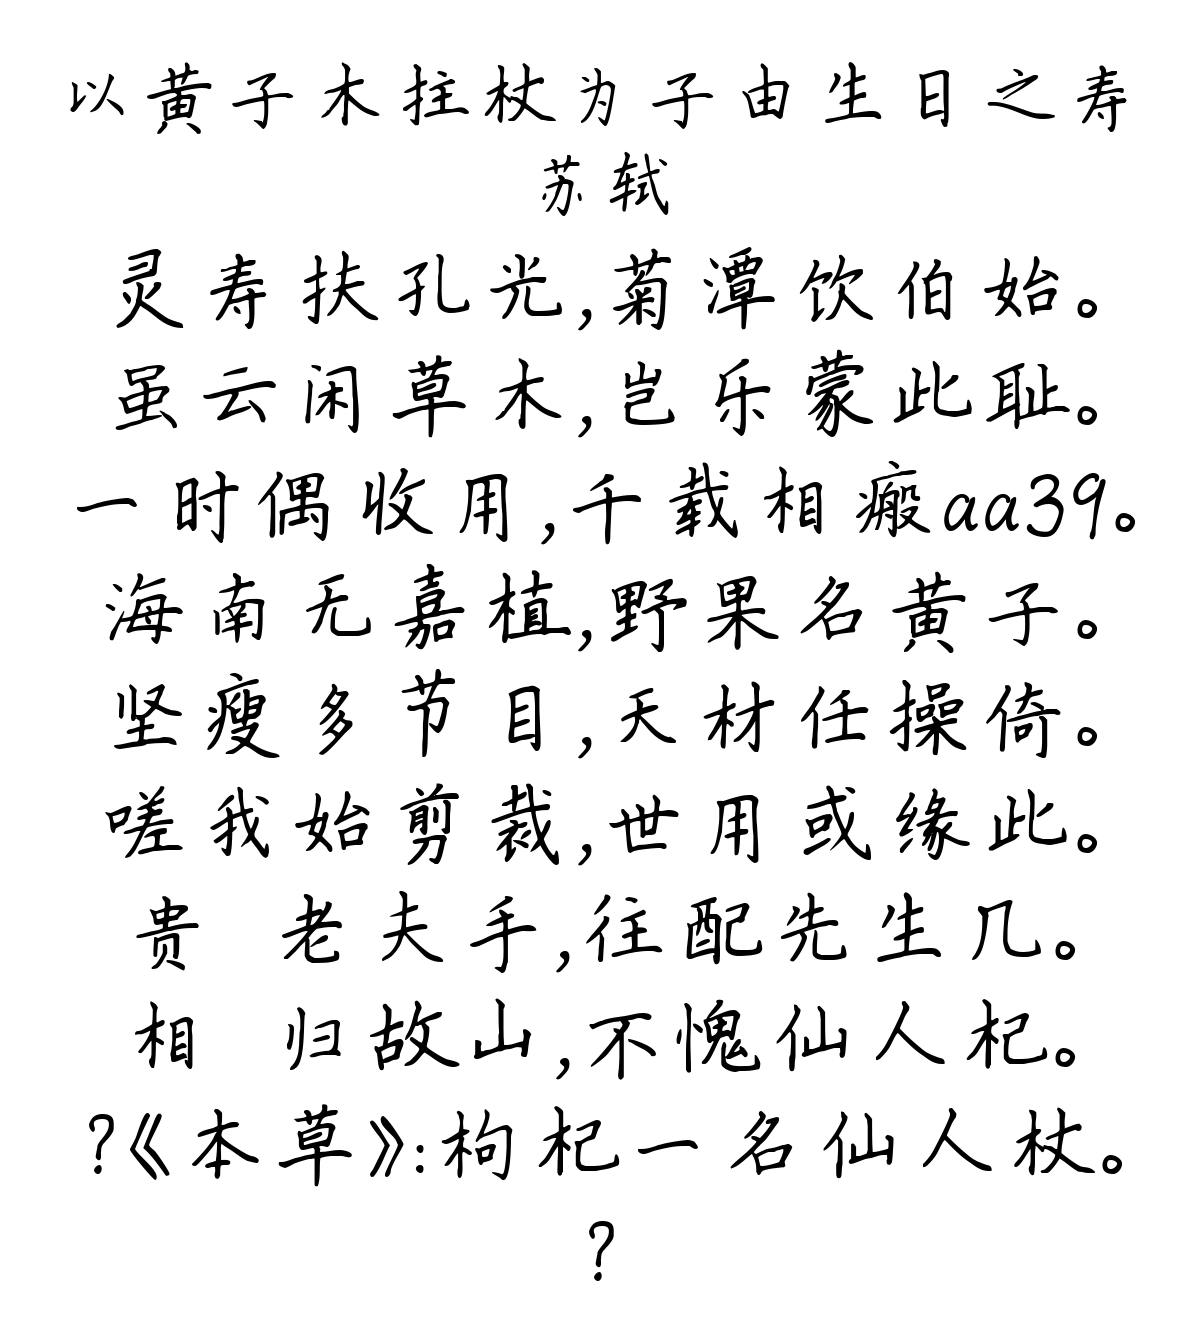 以黄子木拄杖为子由生日之寿
苏轼
灵寿扶孔光,菊潭饮伯始。
虽云闲草木,岂乐蒙此耻。
一时偶收用,千载相瘢aa39。
海南无嘉植,野果名黄子。
坚瘦多节目,天材任操倚。
嗟我始剪裁,世用或缘此。
贵 老夫手,往配先生几。
相 归故山,不愧仙人杞。
?《本草》:枸杞一名仙人杖。
?